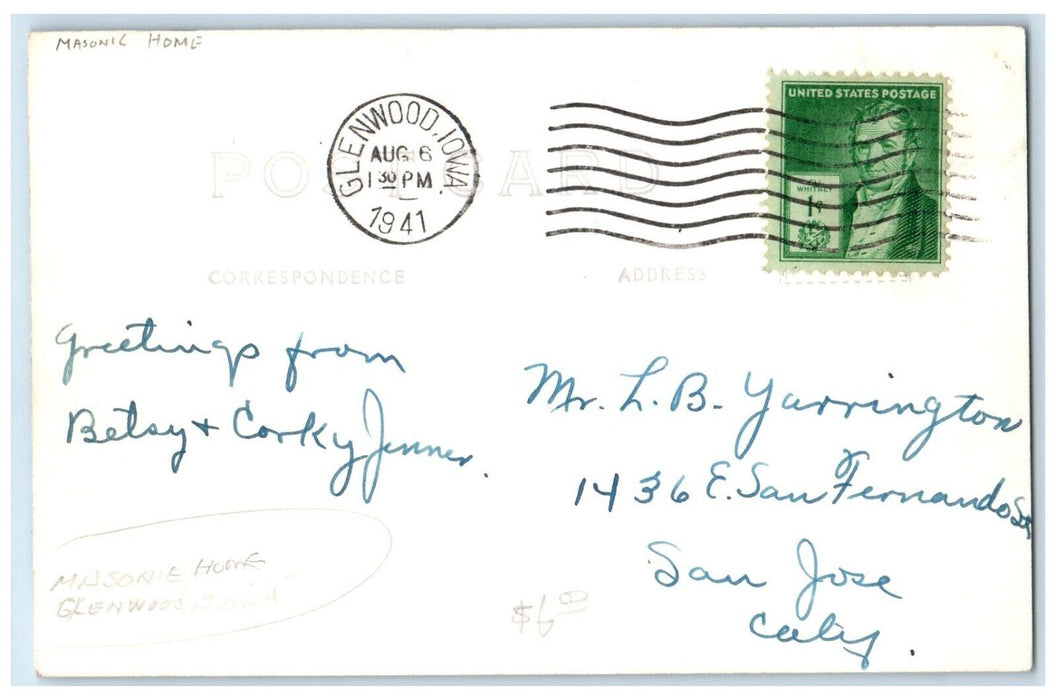 MASONIC HOME
POST CARD
GLENWOOD, IOWA.
AUG 6
1 30 PM
1941
UNITED STATES POSTAGE
ELI WHITNEY
1¢
CORRESPONDENCE
ADDRESS
Greetings from
Betsy + Corky Jenner.
Mr. L. B. Yarrington
1436 E. San Fernando St.
San Jose
Calif.
MASONIC HOME
GLENWOOD, IOWA
$6.00